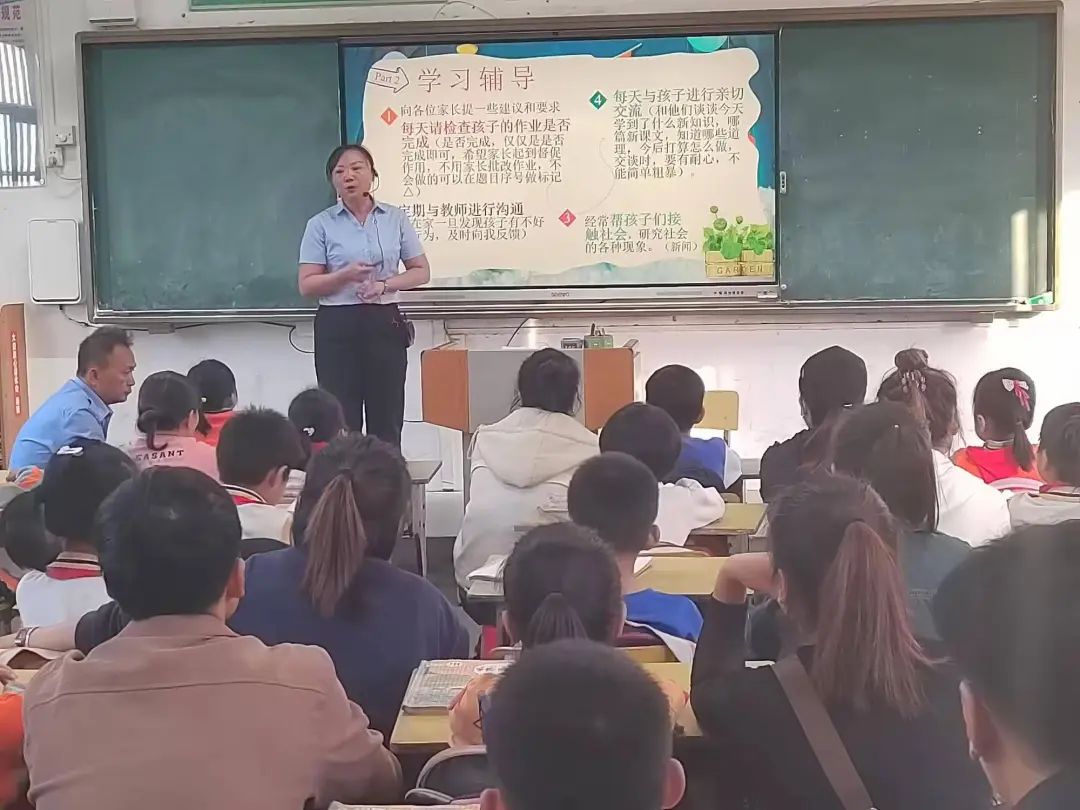 规范
Part 2
学习辅导
1
向各位家长提一些建议和要求
每天请检查孩子的作业是否
完成（是否完成，仅仅是是否
完成即可，希望家长起到督促
作用，不用家长批改作业，不
会做的可以在题目序号做标记
△）
定期与教师进行沟通
在家一旦发现孩子有不好
行为，及时向我反馈）
4
每天与孩子进行亲切
交流（和他们谈谈今天
学到了什么新知识，哪
篇新课文，知道哪些道
理，今后打算怎么做，
交谈时，要有耐心，不
能简单粗暴）。
3
经常帮孩子们接
触社会，研究社会
的各种现象。（新闻）
GARDEN
SASANT